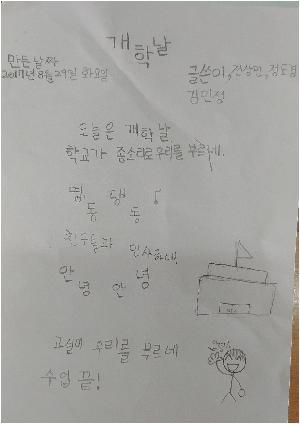 개학날
만든 날짜
2017년 8월 29일 화요일
글쓴이, 전상민, 정도엽
김민성
오늘은 개학날
학교가 종소리로 우리를 부르네.
띵동 댕동 ♪
친구들과 인사하네.
안녕 안녕
교실이 우리를 부르네
수업 끝!